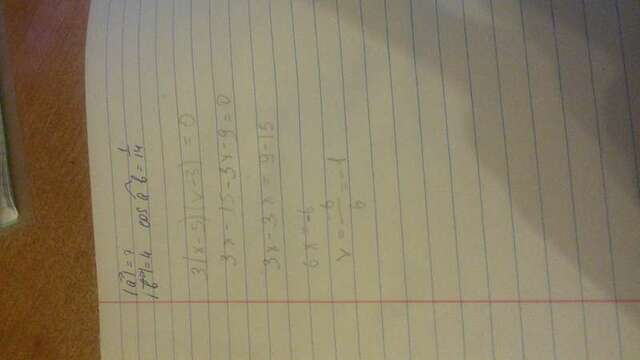 |a⃗|=7
|b⃗|=4 cos a b = 1/14
3(x-5)(x-3) = 0
3x-15-3x-9=0
3x-3x=9-15
6x=-6
x=-6/6=-1